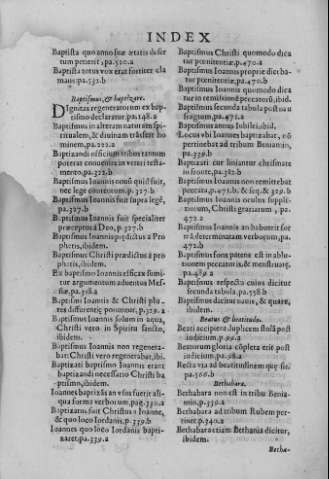 INDEX
Baptista quo anno suæ ætatis deser
tum petierit, pa.320.a
Baptista totus vox erat fortiter cla
mans pa.532.b
Baptismus, & baptizare.
DIgnitas regeneratorum ex bap-
tismo declaratur pa.148.a
Baptismus in alteram naturam spi-
ritualem, & diuinam trāsfert ho
minem, pa.222.a
Baptizandi officium tribui tantum
poterat conuenius in veteri testa-
mento, pa.322.b
Baptismus Ioannis nouū quid fuit,
nec lege contentum, p.327.b
Baptismus Ioannis fuit supra legē,
pa.327.b
Baptismus Ioannis fuit specialiter
præceptus à Deo, p.327.b
Baptismus Ioannis prædictus a Pro
phetis, ibidem.
Baptismus Christi prædictus à pro
phetis, ibidem.
Ex baptismo Ioannis efficax sumi-
tur argumentum aduentus Mes-
siæ, pa.328.a
Baptismi Ioannis & Christi plu-
res differentię ponuntur, p.329.a
Baptismus Ioannis solum in aqua,
Christi vero in Spiritu sancto,
ibidem.
Baptismus Ioannis non regenera-
bat: Christi vero regenerabat, ibi.
Baptizati baptismo Ioannis erant
baptizandi necessario Christi ba
ptismo, ibidem.
Ioannes baptizās an vsus fuerit ali-
qua forma verborum, pag.330.a
Baptizatus fuit Christus a Ioanne,
& quo loco Iordanis, p.339.b
Ioannes quo loco Iordanis bapti-
zaret, pa.339.a
Baptismus Christi quomodo dica
tur pœnitentiæ, p.470.a
Baptismus Ioannis proprie dicba-
tur pœnitentiæ, pa.470.b
Baptismus Ioannis quomodo dica
tur in remissionem peccatorū, ibid.
Baptismus secunda tabula post nau
fragium, pa.471.a
Baptismus annus Iubilei, ibid.
Locus vbi Ioannes baptizabat, nō
pertinebat ad tribum Beniamin,
pa.339.b
Baptizati cur liniantur chrismate
in fronte, pa.382.b
Baptismus Ioannis non remittebat
peccata, p.471.b. & seq. & 329.b
Baptismus Ioannis oculus suppli-
cationum, Christi gratiarum, pa.
472.a
Baptismus Ioannis an habuerit for
mā determinatam verborum, pa.
472.b
Baptismus fons patens est in ablu-
tionem peccatoris, & menstruatę,
pa.489.a
Baptismus respectu cuius dicitur
secunda tabula, pa.558.b
Baptismus dicitur nauis, & quare,
ibidem.
Beatus & beatitudo.
Beati accipient duplicem stolā post
iudicium, p.99.a
Beatorum gloria cōpleta erit post
iudicium, pa.98.a
Recta via ad beatitudinem quę sit.
pa.506.b
Bethabara.
Bethabara non est in tribu Benia-
min, p.339.a
Bethabara ad tribum Rubem per-
tinet, p.340.a
Bethabara etiam Bethania dicitur,
ibidem.
Betha-